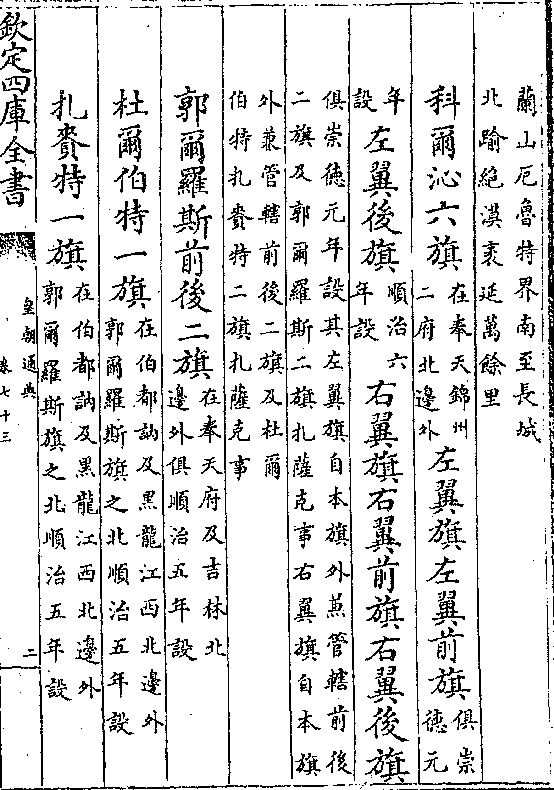 蘭山厄魯特界南至長城
北踰絶漠袤延萬餘里
科爾沁六旗在奉天錦州二府北邊外左翼旗左翼前旗俱崇德元
年設左翼後旗順治六年設右翼旗右翼前旗右翼後旗
俱崇德元年設其左翼旗自本旗外蒹管轄前後
二旗及郭爾羅斯二旗扎薩克事右翼旗自本旗
外蒹管轄前後二旗及杜爾
伯特扎賚特二旗扎薩克事
郭爾羅斯前後二旗在奉天府及吉林北邊外俱順治五年設
杜爾伯特一旗在伯都訥及黑龍江西北邊外郭爾羅斯旗之北順治五年設
扎賚特一旗在伯都訥及黑龍江西北邊外郭爾羅斯旗之北順治五年設
欽定四庫全書
皇朝通典
卷七十三
二